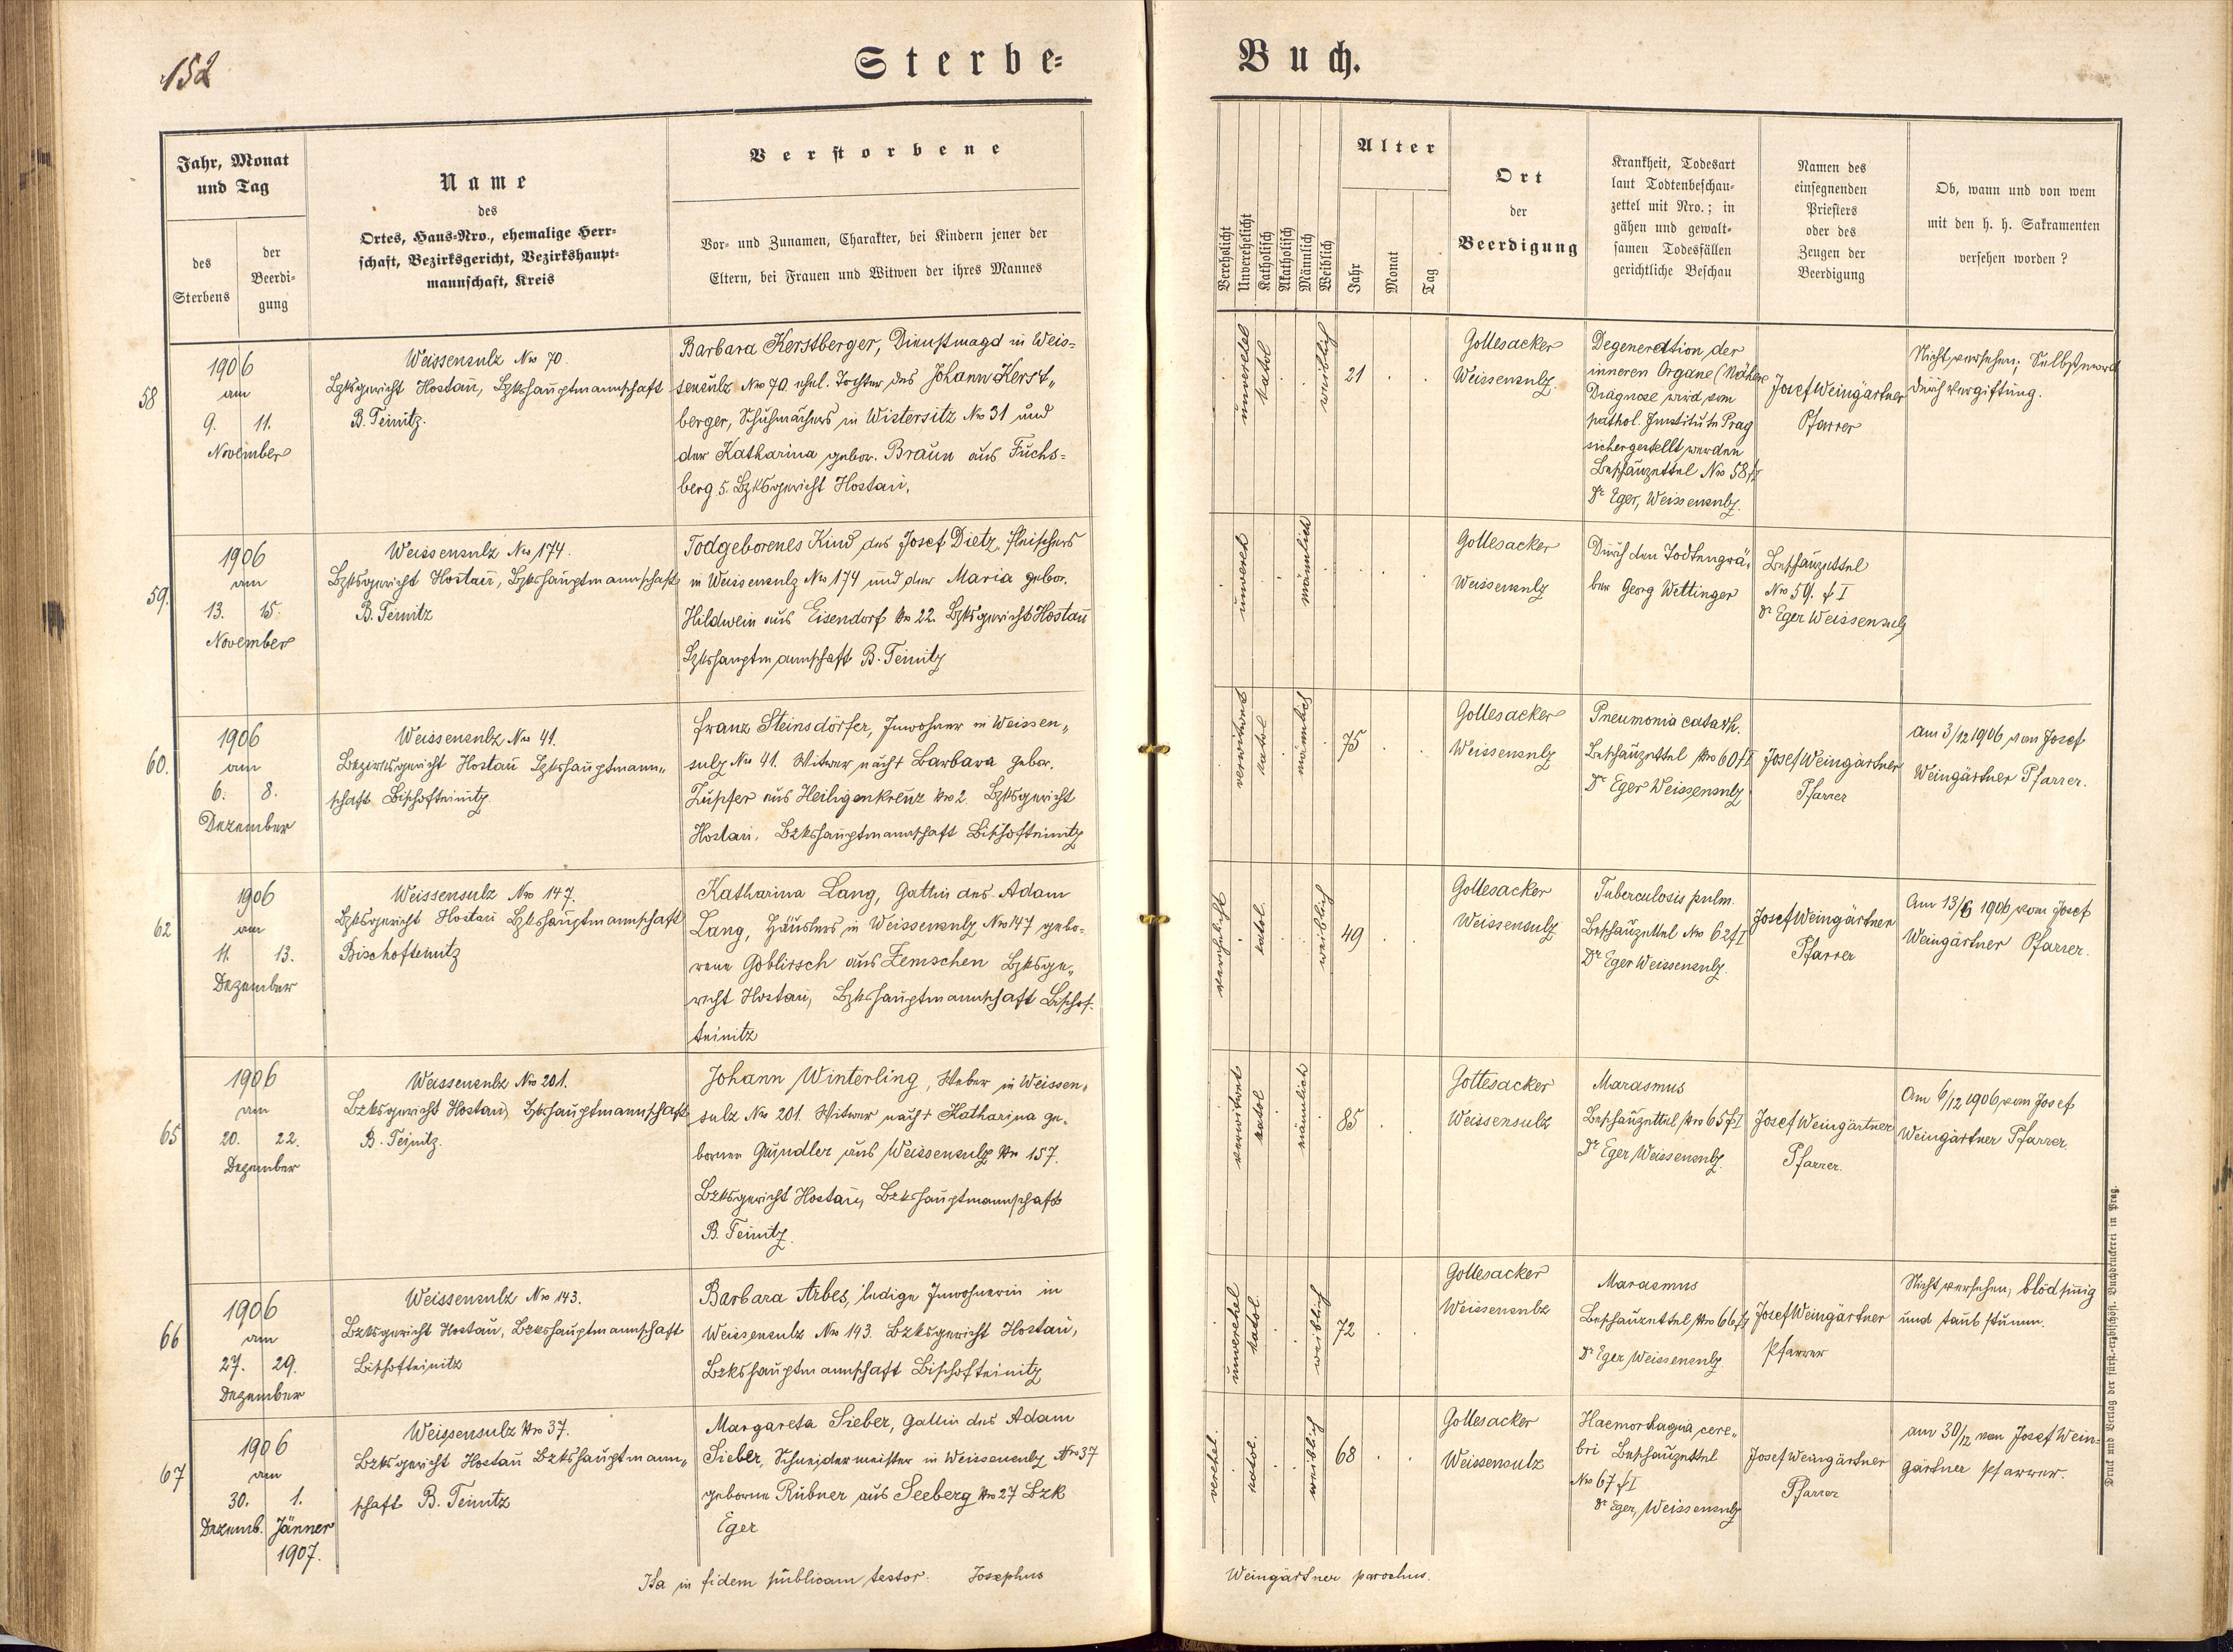 152
Sterbe-
Buch.
Jahr, Monat
und Tag
des
Sterbens
der
Beerdi-
gung
Name
des
Ortes, Haus-Nro., ehemalige Herr-
schaft, Bezirksgericht, Bezirkshaupt-
mannschaft, Kreis
Verstorbene
Vor- und Zunamen, Charakter, bei Kindern jener der
Eltern, bei Frauen und Witwen der ihres Mannes
Verehelicht
Unverehelicht
Katholisch
Akatholisch
Männlich
Weiblich
Alter
Jahr
Monat
Tag
Ort
der
Beerdigung
Krankheit, Todesart
laut Todtenbeschau-
zettel mit Nro.; in
gähen und gewalt-
samen Todesfällen
gerichtliche Beschau
Namen des
einsegnenden
Priesters
oder des
Zeugen der
Beerdigung
Ob, wann und von wem
mit den h. h. Sakramenten
versehen worden?
58
1906
am
9. 11.
November
Weissensulz Nro 70.
Bzksgericht Hostau, Bzkshauptmannschaft
B. Teinitz.
Barbara Kerstberger, Dienstmagd in Weis-
sensulz Nro 70. ehel. Tochter des Johann Kerst„
berger, Schuhmachers in Wistersitz No 31 und
der Katharina gebor. Braun aus Fuchs-
berg 5. Bzksgericht Hostau.
unverehel
katol
weiblich
21
Gottesacker
Weissensulz.
Degeneration der
inneren Organe (Nähere
Diagnose wird vom
pathol. Institute Prag
sichergestellt werden
Beschauzettel Nro 58 f I
Dr Eger, Weissensulz.
Josef Weingärtner
Pfarrer
Nicht versehen; Selbstmord
durch Vergiftung.
59.
1906
am
13. 15.
November
Weissensulz Nro 174.
Bzksgericht Hostau, Bzkshauptmannschaft
B. Teinitz
Todgeborenes Kind des Josef Dietz, Fleischers
in Weissensulz Nro 174 und der Maria gebor.
Hildwein aus Eisendorf No 22. Bzksgericht Hostau
Bzkshauptmannschaft B. Teinitz
unvereh
männlich
Gottesacker
Weissensulz
Durch den Todtengrä„
ber Georg Wettinger
Beschauzettel
Nro 59. f I
Dr Eger Weissensulz
60.
1906
am
6. 8.
Dezember
Weissensulz Nro 41.
Bezirksgericht Hostau Bzkshauptmann„
schaft Bischofteinitz.
Franz Steinsdörfer, Inwohner in Weissen„
sulz Nro 41. Witwer nach + Barbara gebor.
Zupfer aus Heiligenkreuz Nro 2. Bzksgericht
Hostau. Bzkshauptmannschaft Bischofteinitz
verwitwet
katol
männlich
75
Gottesacker
Weissensulz
Pneumonia catarh.
Beschauzettel Nro 60 f I
Dr Eger Weissensulz
Josef Weingärtner
Pfarrer
am 3/12 1906 von Josef
Weingärtner Pfarrer.
62
1906
am
11. 13.
Dezember
Weissensulz Nro 147.
Bzksgericht Hostau Bzkshauptmannschaft
Bischofteinitz
Katharina Lang, Gattin des Adam
Lang, Häuslers in Weissensulz Nro 147 gebo-
rene Goblirsch aus Zemschen Bzksge„
richt Hostau, Bzkshauptmannschaft Bischof-
teinitz
verehelicht
katol.
weiblich
49
Gottesacker
Weissensulz
Tuberculosis pulm.
Beschauzettel Nro 62 f I
Dr Eger Weissensulz.
Josef Weingärtner
Pfarrer
Am 13/6 1906 vom Josef
Weingärtner Pfarrer.
65
1906
am
20. 22.
Dezember
Weissensulz Nro 201.
Bzksgericht Hostau, Bzkshauptmannschaft
B. Teinitz.
Johann Winterling, Weber in Weissen„
sulz Nro 201. Witwer nach + Katharina ge„
bornen Gwindler aus Weissensulz Nro 157.
Bzksgericht Hostau, Bzkshauptmannschaft
B. Teinitz.
verwitwet
katol
männlich
85
Gottesacker
Weissensulz
Marasmus
Beschauzettel Nro 65 f I
Dr Eger, Weissensulz.
Josef Weingärtner
Pfarrer.
Am 6/12 1906, vom Josef
Weingärtner Pfarrer.
66
1906
am
27. 29.
Dezember
Weissensulz Nro 143.
Bzksgericht Hostau, Bzkshauptmannschaft
Bischofteinitz
Barbara Arbes, ledige Inwohnerin in
Weissensulz Nro 143. Bzksgericht Hostau,
Bzkshauptmannschaft Bischofteinitz
unverehel
katol.
weiblich
72
Gottesacker
Weissensulz
Marasmus
Beschauzettel Nro 66 f I
Dr Eger Weissensulz
Josef Weingärtner
Pfarrer
Nicht versehen, blödsinnig
und taubstumm.
67
1906
am
30. 1.
Dezemb. Jänner
1907.
Weissensulz Nro 37.
Bzksgericht Hostau Bzkshauptmann„
schaft B. Teinitz
Margareta Sieber, Gattin des Adam
Sieber, Schneidermeister in Weissensulz Nro 37
geborne Rubner aus Seeberg Nro 27 Bzk
Eger
verehel.
katol.
weiblich
68
Gottesacker
Weissensulz
Haemorhagia cere„
bri Beschauzettel
Nro 67 f I
Dr Eger, Weissensulz
Josef Weingärtner
Pfarrer
am 30/12 von Josef Wein-
gärtner Pfarrer.
Ita in fidem publicam testor. Josephus
Weingärtner parochus.
Druck und Verlag der fürst.-erzbischöfl. Buchdruckerei in Prag.